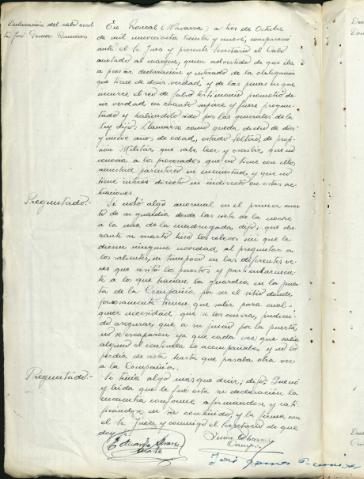 Declaración del cabo
José Ramos
En Roncal (Navarra) a tres de Octubre
de mil novecientos treinta y nueve, compareció
ante el Sr Juez y presente Secretario el Cabo
anotado al margen, quien advertido de que iba
a prestar declaración y enterado de la obligación
que tiene de decir verdad, y de las penas en que
incurre el reo de falso testimonio prometió de-
cir verdad en cuanto supiere y fuere pregun-
tado y habiéndolo sido por las generales de la
Ley dijo: Llamarse como queda dicho de diez
y nueve años de edad, estado soltero de profe-
sión Militar que sabe leer y escribir, que no
conocía a los procesados que no tiene con ellos
amistad parentesco ni enemistad y que no
tiene interés directo ni indirecto en estas ac-
tuaciones.
Preguntado.-
Si notó algo anormal en el primer cuar-
to de su guardia desde las siete de la noche
a la una de la madrugada dijo, que du-
rante su cuarto hizo los relevos sin que le
diesen ninguna novedad, al preguntar a
los salientes, ni tampoco en las diferentes ve-
ces que visitó los puestos y particularmen-
te a lo que hacían la guardia en la puer-
ta de la Compañía por ser el sitio donde
forzosamente tienen que salir para cual-
quier necesidad, que
asegurar que a su juicio por la puerta
no se escaparon ya que cada vez que salía
alguno el centinela lo acompañaba y no lo
perdía de vista hasta que pasaba otra vez
a la Compañía.
Preguntado.-
Si tenía algo más que decir, dijo: Que no
y leída que le fue esta su declaración la
encuentra conforme afirmándose y rati-
ficándose en su contenido y la firma con
el Sr Juez y conmigo el Secretario de que
doy fe.
Eduardo
José Ramos